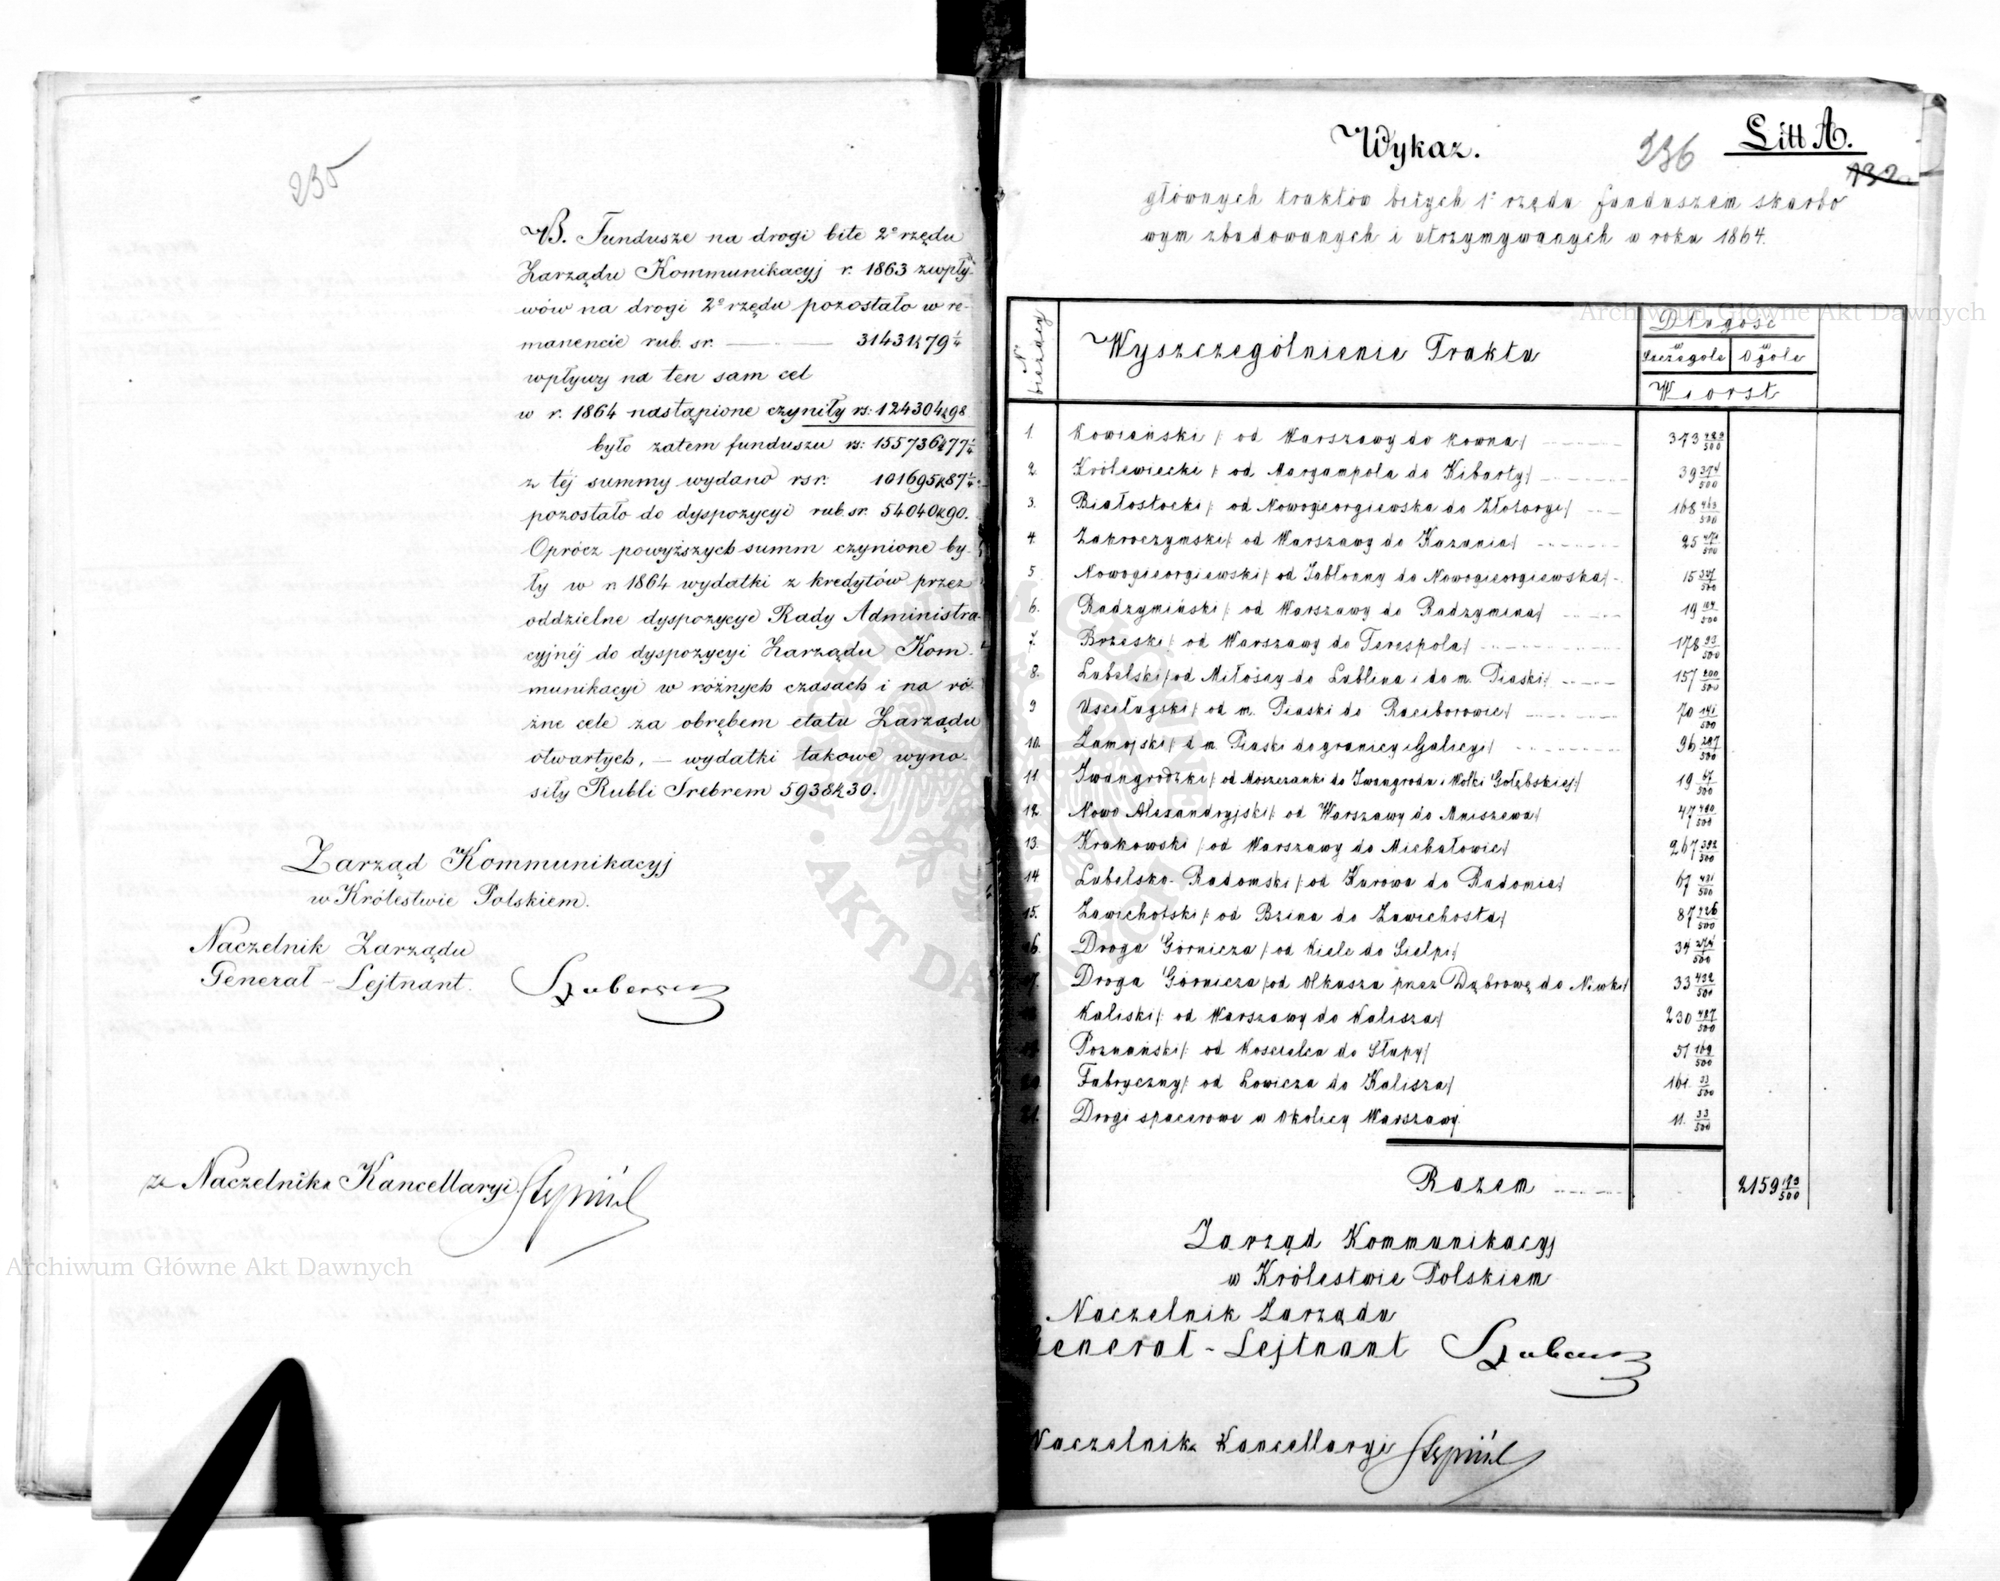 235
B. Fundusze na drogi bite 2º rzędu
Zarządu Kommunikacyj r. 1863 z wpły-
wów na drogi 2º rzędu pozostało w re-
manencie rub. sr. — 31431 k 79 1/4
wpływy na ten sam cel
w r. 1864 nastąpione czyniły rs: 124304 k 98
było zatem funduszu rs: 155736 k 77 1/4
z tej summy wydano rsr. 101695 k 87 1/4
pozostało do dyspozycyi rub. sr. 54040 k 90.
Oprócz powyższych summ czynione by-
ły w r. 1864 wydatki z kredytów przez
oddzielne dyspozycye Rady Administra-
cyjnéj do dyspozycyi Zarządu Kom-
munikacyi w różnych czasach i na ró-
żne cele za obrębem etatu Zarządu
otwartych, — wydatki takowe wyno-
siły Rubli Srebrem 5938 k 30.
Zarząd Kommunikacyj
w Królestwie Polskiem.
Naczelnik Zarządu
Generał-Lejtnant.
za Naczelnika Kancellaryi
Litt A.
Wykaz.
236
132
głównych traktów bitych 1º rzędu funduszem skarbo
wym zbudowanych i utrzymywanych w roku 1864.
N. bieżący
Wyszczególnienie Traktu
Długość
w szczególe w ogóle
Wiorst
1. Kowieński /: od Warszawy do Kowna/ 373 489/500
2. Królewiecki /: od Maryampola do Kibarty/ 39 374/500
3. Białostocki /: od Nowogeorgiewska do Złotoryi/ 168 463/500
4. Zakroczymski /: od Warszawy do Kazunia/ 25 471/500
5 Nowogieorgiewski /: od Jabłonny do Nowogieorgiewska/ 15 347/500
6. Radzymiński /: od Warszawy do Radzymina/ 19 104/500
7. Brzeski /: od Warszawy do Terespola/ 178 93/500
8. Lubelski /: od Miłosny do Lublina i do m. Piaski/ 157 200/500
9 Uściługski /: od m. Piaski do Raciborowic/ 70 141/500
10. Zamojski /: od m. Piaski do granicy Galicyi/ 96 247/500
11 Iwangrodzki /: od Moszczanki do Iwangrodu i Wólki Gołębskiej/ 19 67/500
12. Nowo Alexandryjski /: od Warszawy do Mniszewa/ 47 480/500
13. Krakowski /: od Warszawy do Michałowic/ 267 382/500
14 Lubelsko-Radomski /: od Kurowa do Radomia/ 67 401/500
15. Zawichotski /: od Bzina do Zawichosta/ 87 226/500
16. Droga Górnicza /: od Kielc do Sielpi/ 34 274/500
17. Droga Górnicza /: od Olkusza przez Dąbrowę do Niwki/ 33 432/500
18 Kaliski /: od Warszawy do Kalisza/ 230 487/500
19. Poznański /: od Kościelca do Słupy/ 51 169/500
20. Fabryczny /: od Łowicza do Kalisza/ 161. 33/500
21. Drogi spacerowe w okolicy Warszawy 11. 33/500
Razem 2159 13/500
Zarząd Kommunikacyj
w Królestwie Polskiem
Naczelnik Zarządu
Generał-Lejtnant
Naczelnika Kancellaryi
Archiwum Główne Akt Dawnych
Archiwum Główne Akt Dawnych